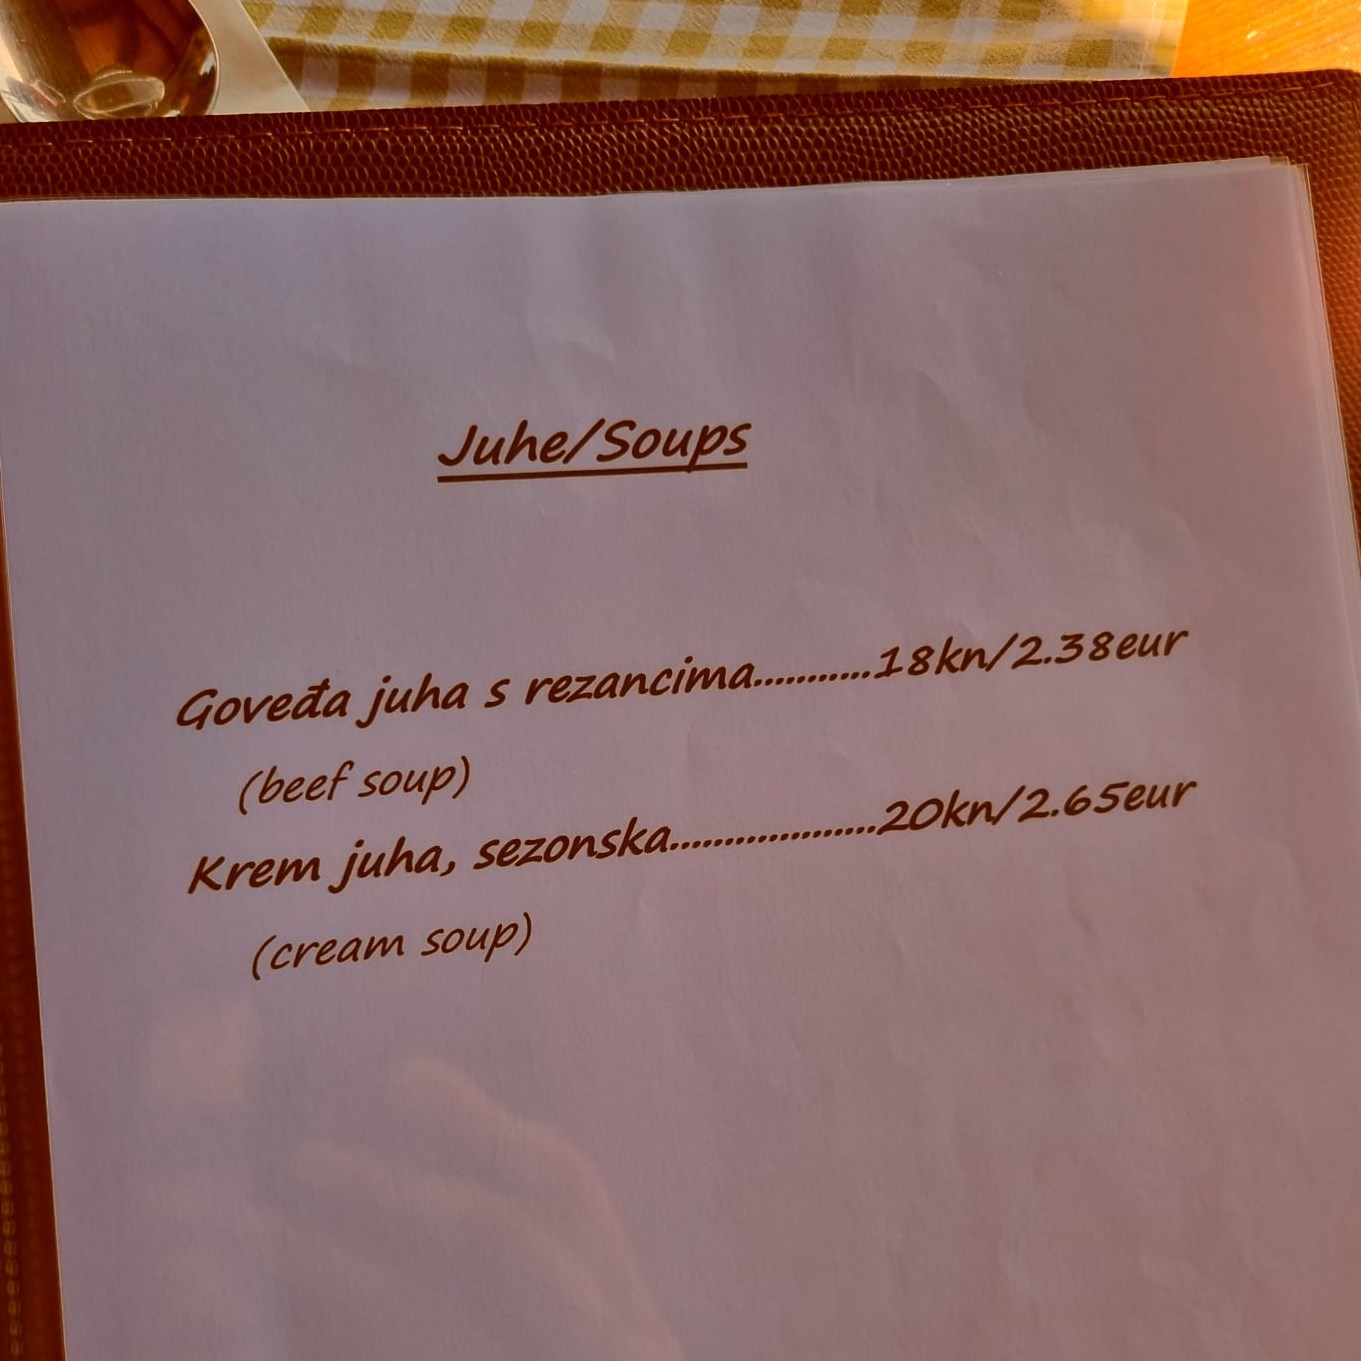 Juhe/Soups
Goveđa juha s rezancima...........18kn/2.38eur
(beef soup)
Krem juha, sezonska...................20kn/2.65eur
(cream soup)